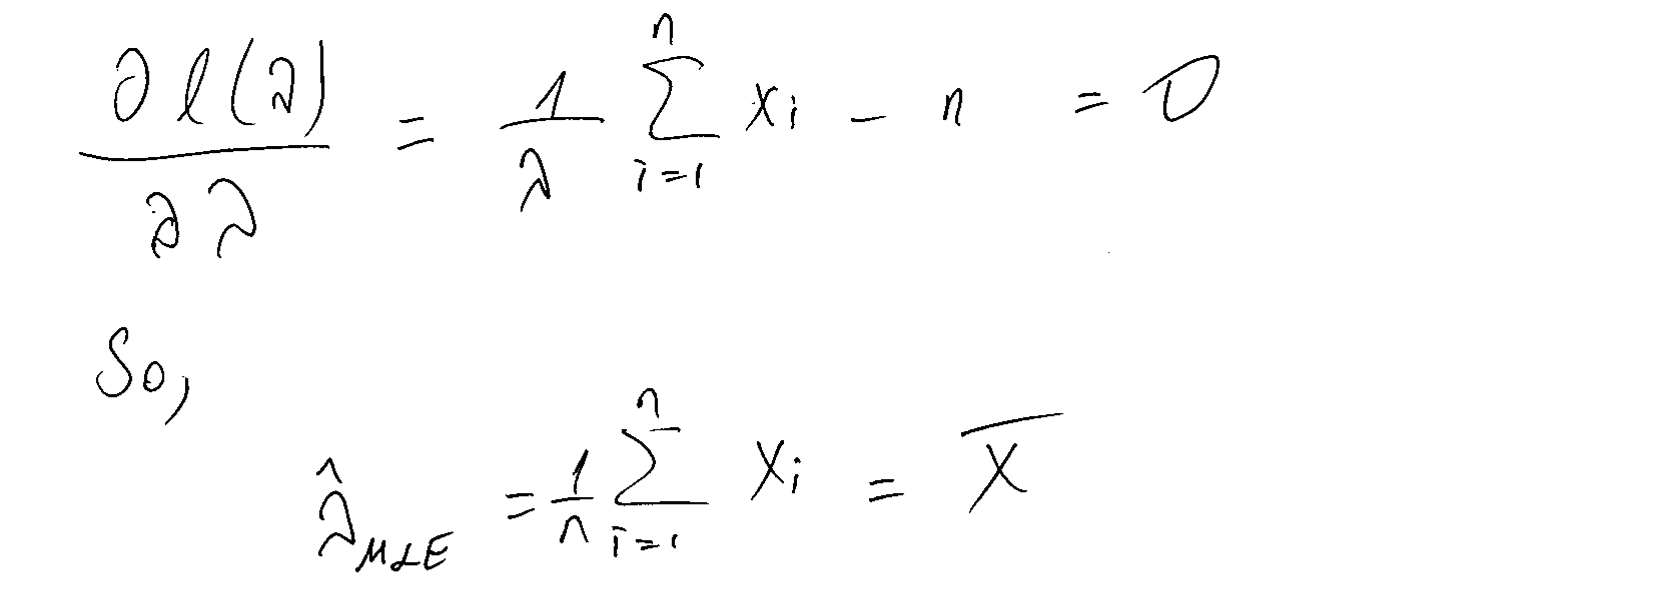 ∂ℓ(λ)/∂λ = 1/λ ∑_{i=1}^{n} xi − n = 0
So,
λ̂_MLE = 1/n ∑_{i=1}^{n} Xi = X̄